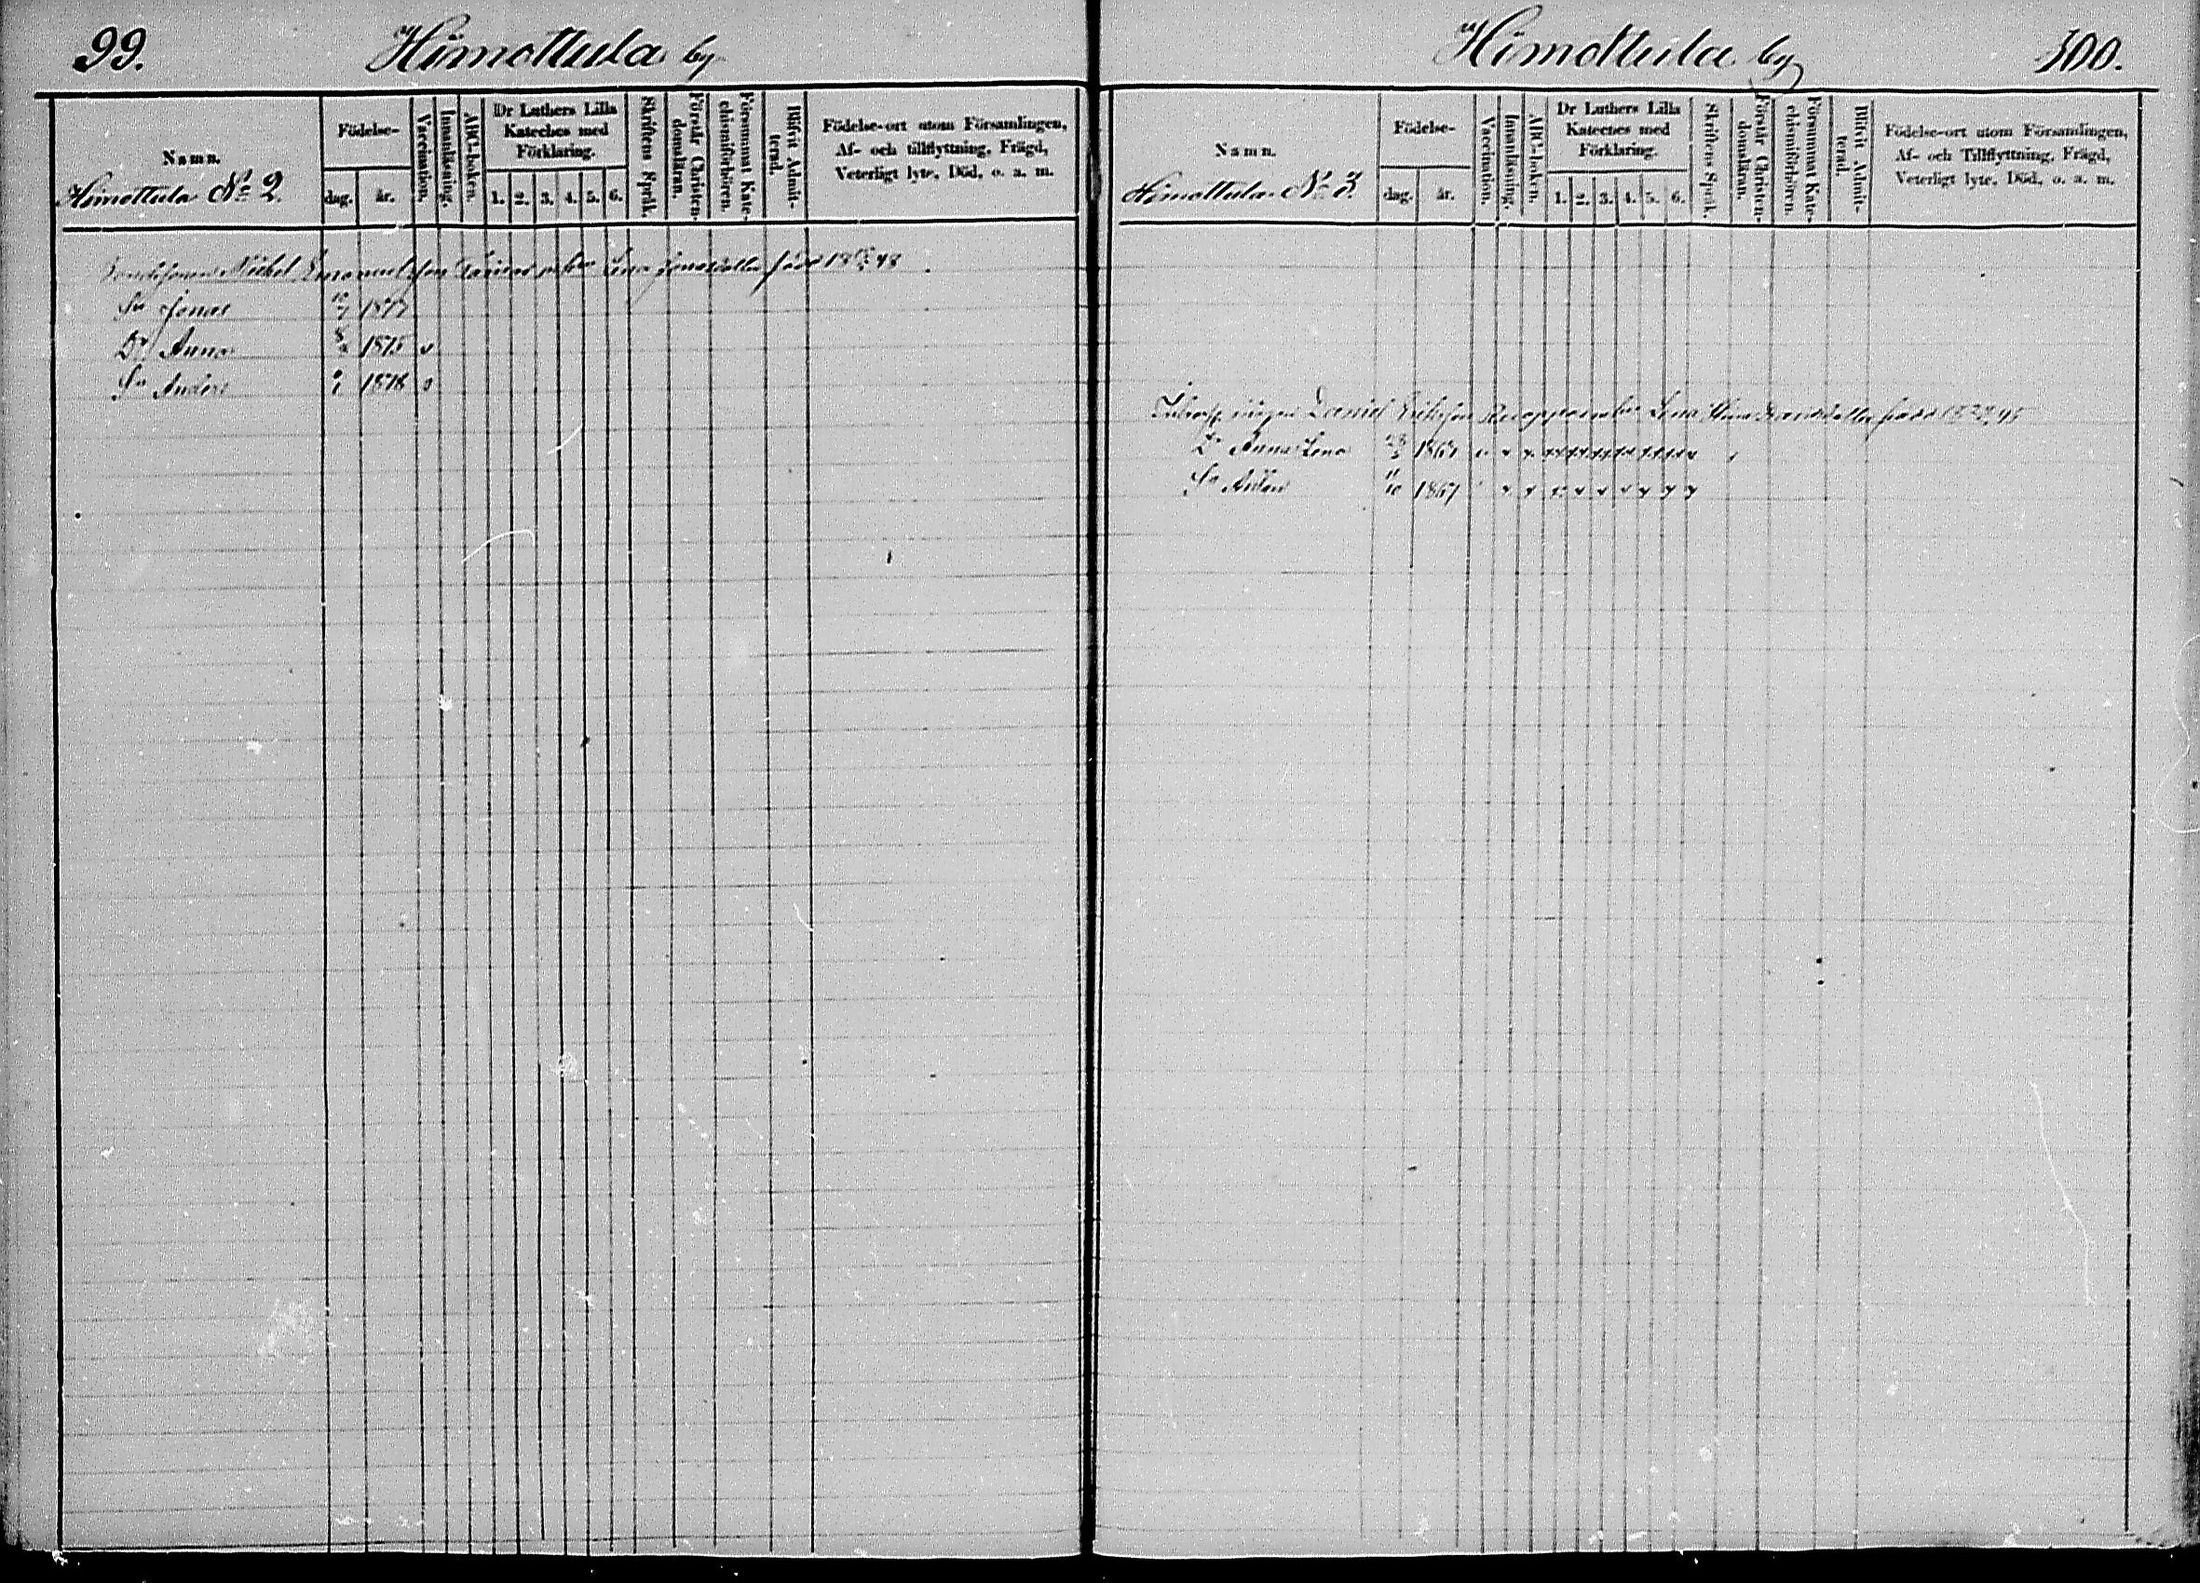 99.
Himottula by
Namn.
Himottula No 2.
Födelse-
dag.
år.
Vaccination.
Innanläsning.
ABC-boken.
Dr Luthers Lilla
Kateches med
Förklaring.
1. 2. 3. 4. 5. 6.
Skriftens Språk.
Förstår Christen-
domsläran.
Försummat Kate-
chismiförhören.
Blifvit Admit-
terad.
Födelse-ort utom Församlingen,
Af- och tillflyttning, Frägd,
Veterligt lyte, Död, o. a. m.
Michel Emanuelsson Lena född
Sn Jonas
Dr Anna 1875
Sn Anders 1878
Himottula by
100.
Namn.
Himottula No 3.
Födelse-
dag.
år.
Vaccination.
Innanläsning.
ABC-boken.
Dr Luthers Lilla
Kateches med
Förklaring.
1. 2. 3. 4. 5. 6.
Skriftens Språk.
Förstår Christen-
domsläran.
Försummat Kate-
chismiförhören.
Blifvit Admit-
terad.
Födelse-ort utom Församlingen,
Af- och Tillflyttning, Frägd,
Veterligt lyte, Död, o. a. m.
Daniel Eriksson Lena Stina född
Dr Anna Lena
Sn 11/10 1867